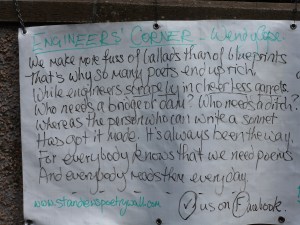 ENGINEERS' CORNER - Wendy Cope.
We make more fuss of ballads than of blueprints
that's why so many poets end up rich,
While engineers scrape by in cheerless garrets.
Who needs a bridge or dam? Who needs a ditch?
Whereas the person who can write a sonnet
Has got it made. It's always been the way.
For everybody knows that we need poems
And everybody reads them everyday.
www.standrewspoetrywall.com
us on Facebook.